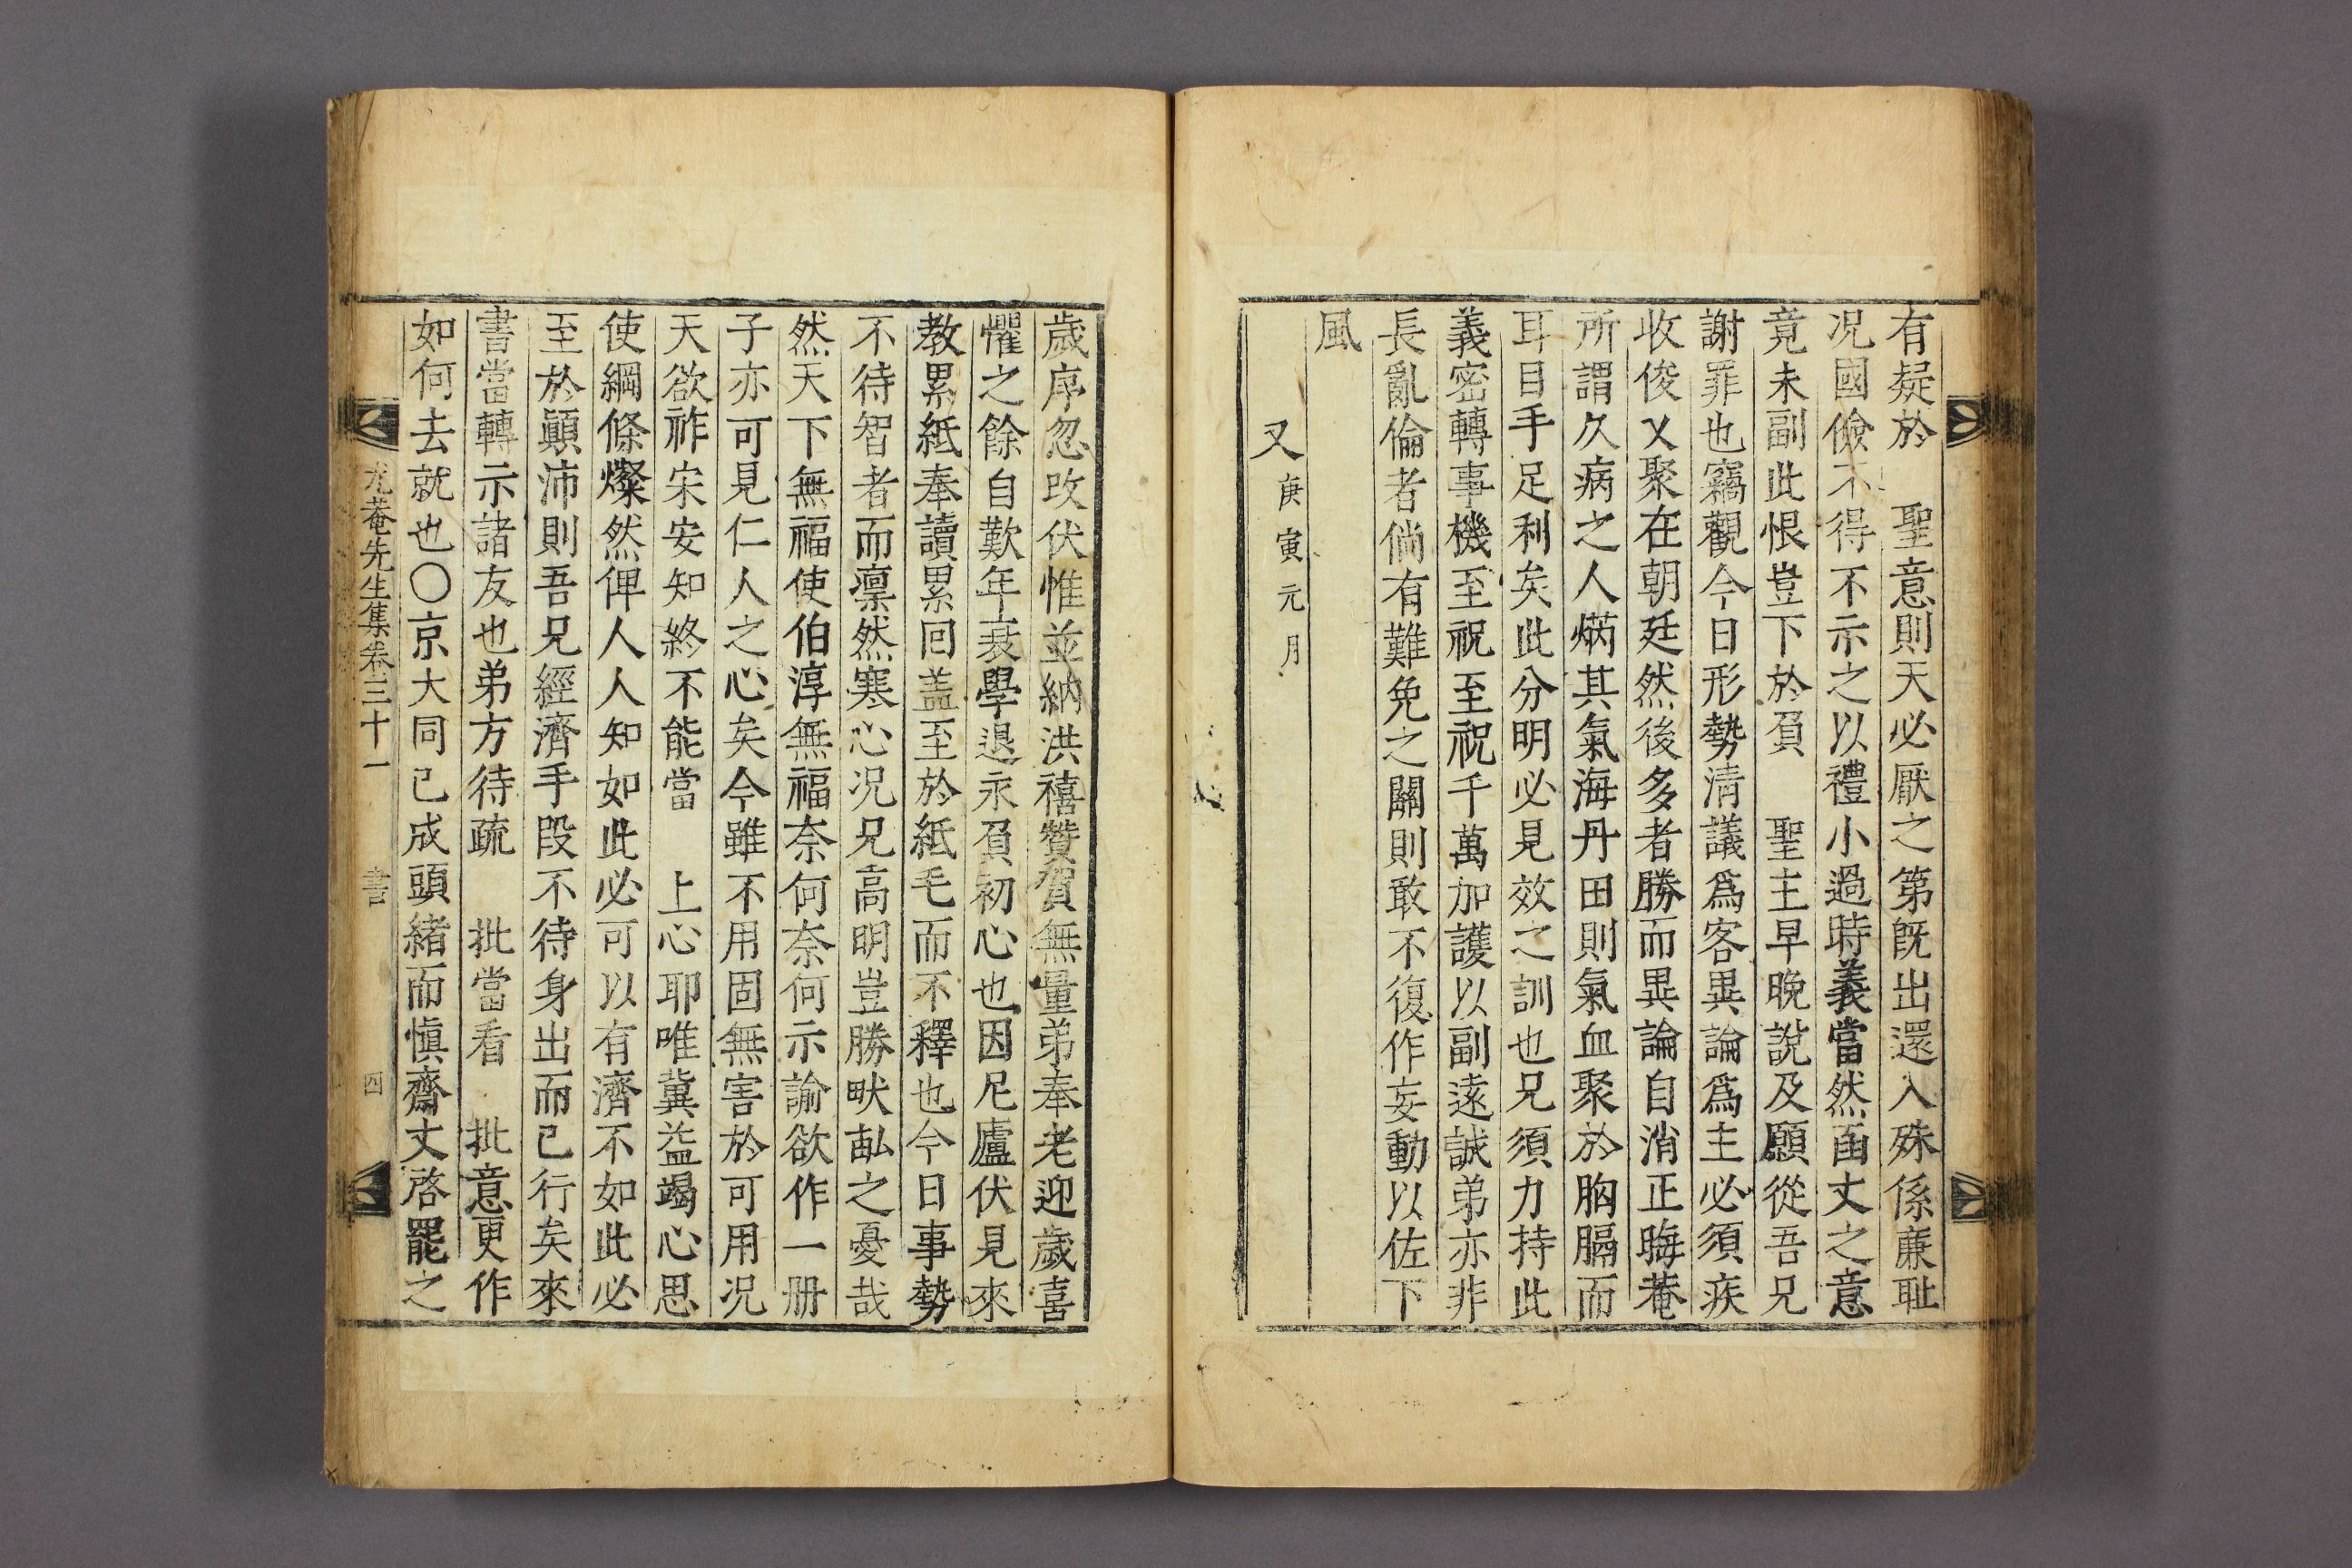 有疑於　聖意則天必厭之第旣出還入殊係廉耻
况國儉不得不示之以禮小過時義當然函丈之意
竟未副此恨豈下於負　聖主早晚說及願從吾兄
謝罪也竊觀今日形勢淸議爲客異論爲主必須疾
收俊乂聚在朝廷然後多者勝而異論自消正晦菴
所謂久病之人焫其氣海丹田則氣血聚於胸膈而
耳目手足利矣此分明必見效之訓也兄須力持此
義密轉事機至祝至祝千萬加護以副遠誠弟亦非
長亂倫者倘有難免之關則敢不復作妄動以佐下
風
又 庚寅元月
歲序忽改伏惟並納洪禧贊賀無量弟奉老迎歲喜
懼之餘自歎年衰學退永負初心也因尼廬伏見來
教累紙奉讀累回盖至於紙毛而不釋也今日事勢
不待智者而凛然寒心况兄高明豈勝畎畝之憂哉
然天下無福使伯淳無福奈何奈何示諭欲作一册
子亦可見仁人之心矣今雖不用固無害於可用况
天欲祚宋安知終不能當　上心耶唯冀益竭心思
使綱條燦然俾人人知如此必可以有濟不如此必
至於顚沛則吾兄經濟手段不待身出而已行矣來
書當轉示諸友也弟方待疏　批當看　批意更作
如何去就也〇京大同已成頭緖而愼齋丈啓罷之
尤菴先生集卷三十一　書　四